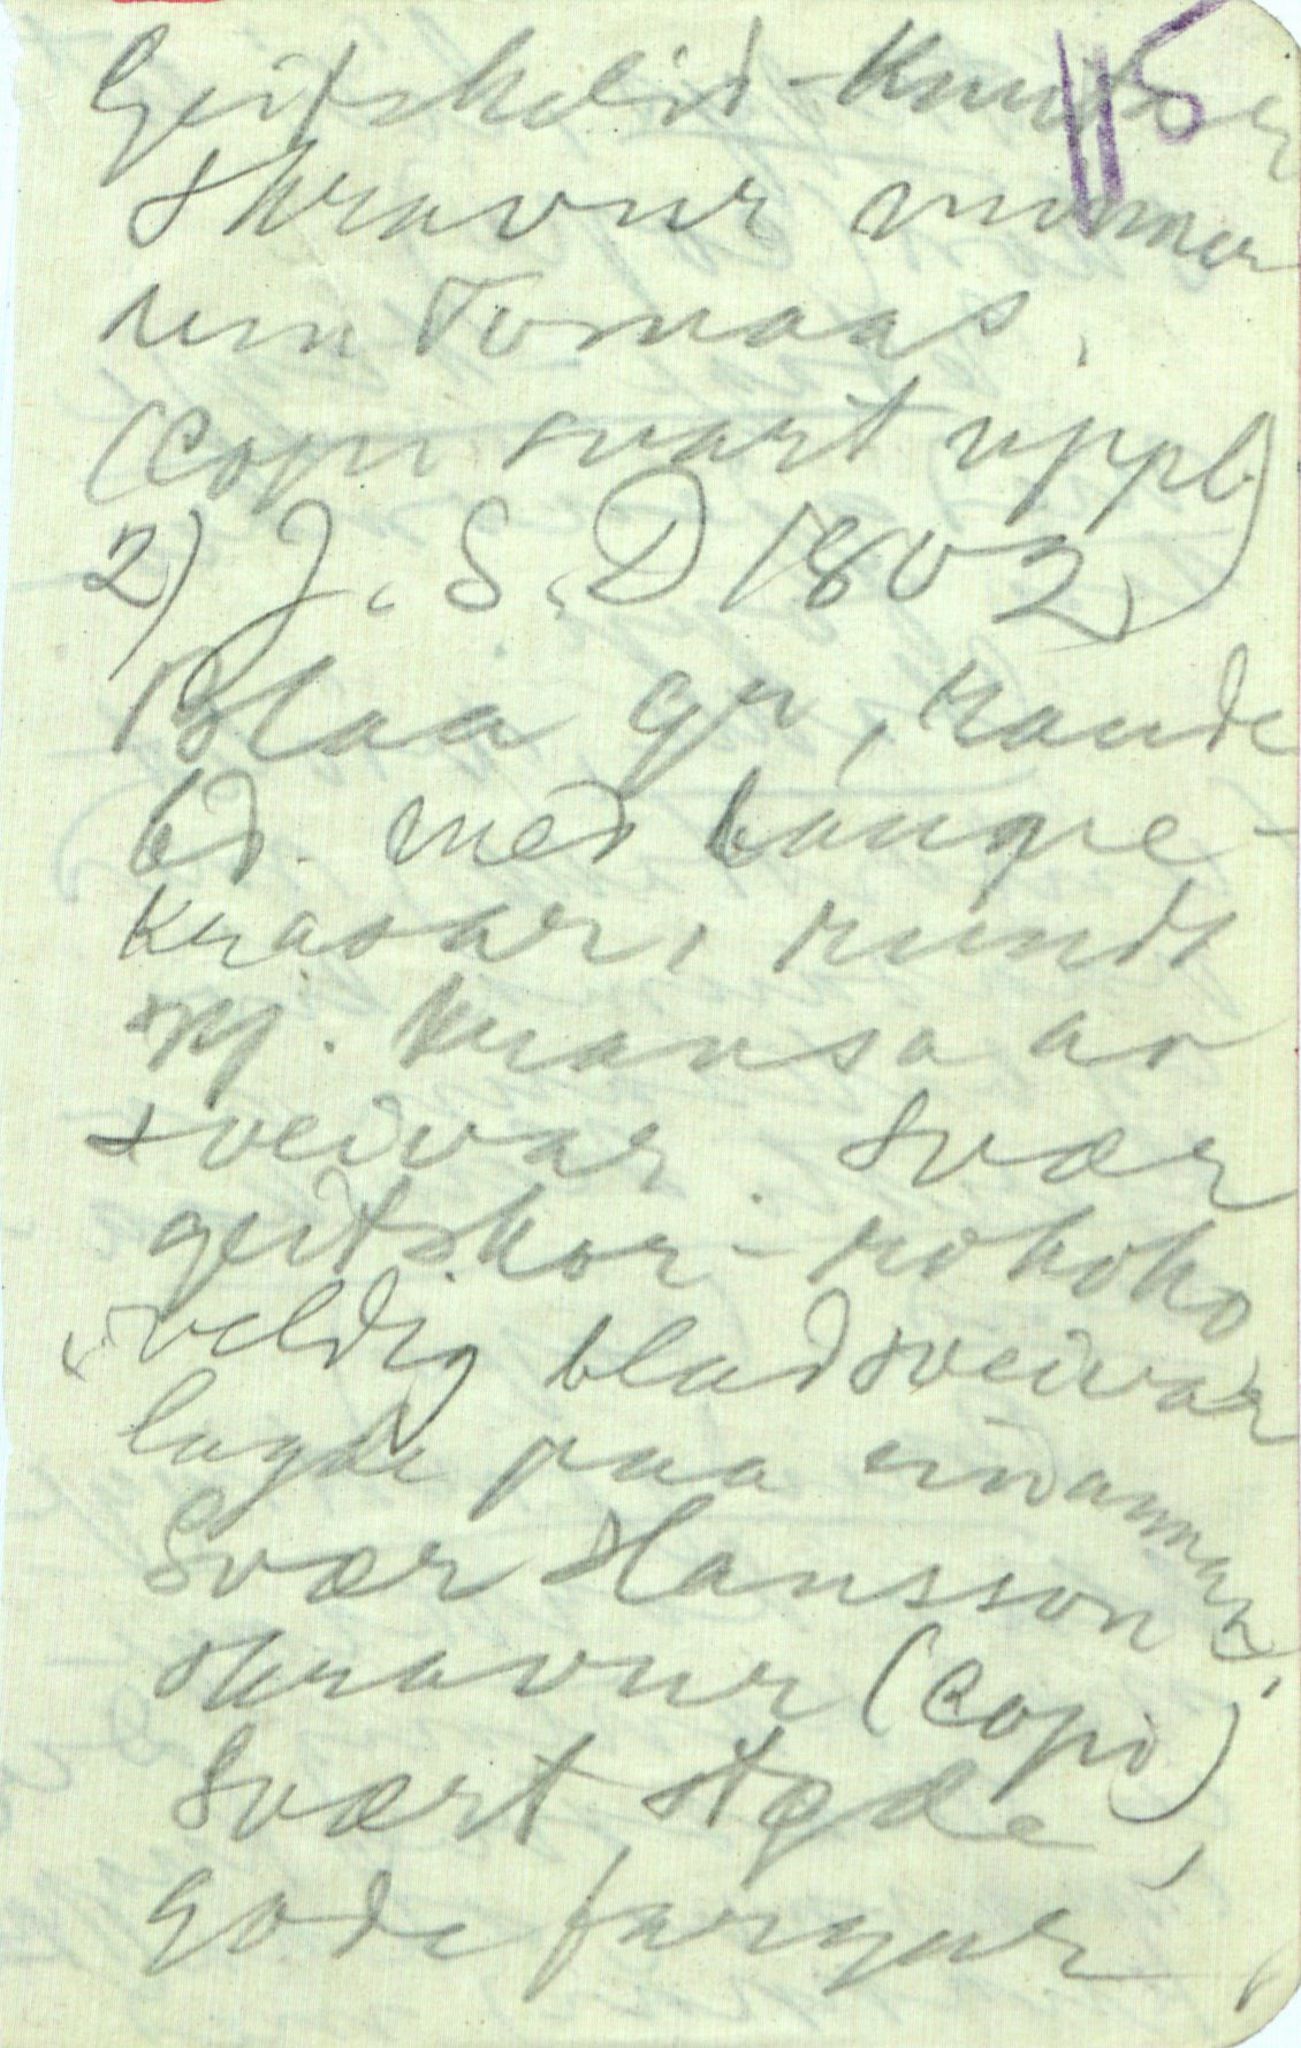 115
Geitskeid-Knutser
skravur minner
um Tomaas.
(Copi svart uppl)
2) J. S. D 1802)
Blaa gr, raude
bd. med baugre-
krasar, rundt
kj. kransa av
sveivar. Svær
geitskor-rokoko
veldig bladsveivar
lagde paa einannan,
Svær Hansson
skravur (copi)
Svært støde,
gode fargar,